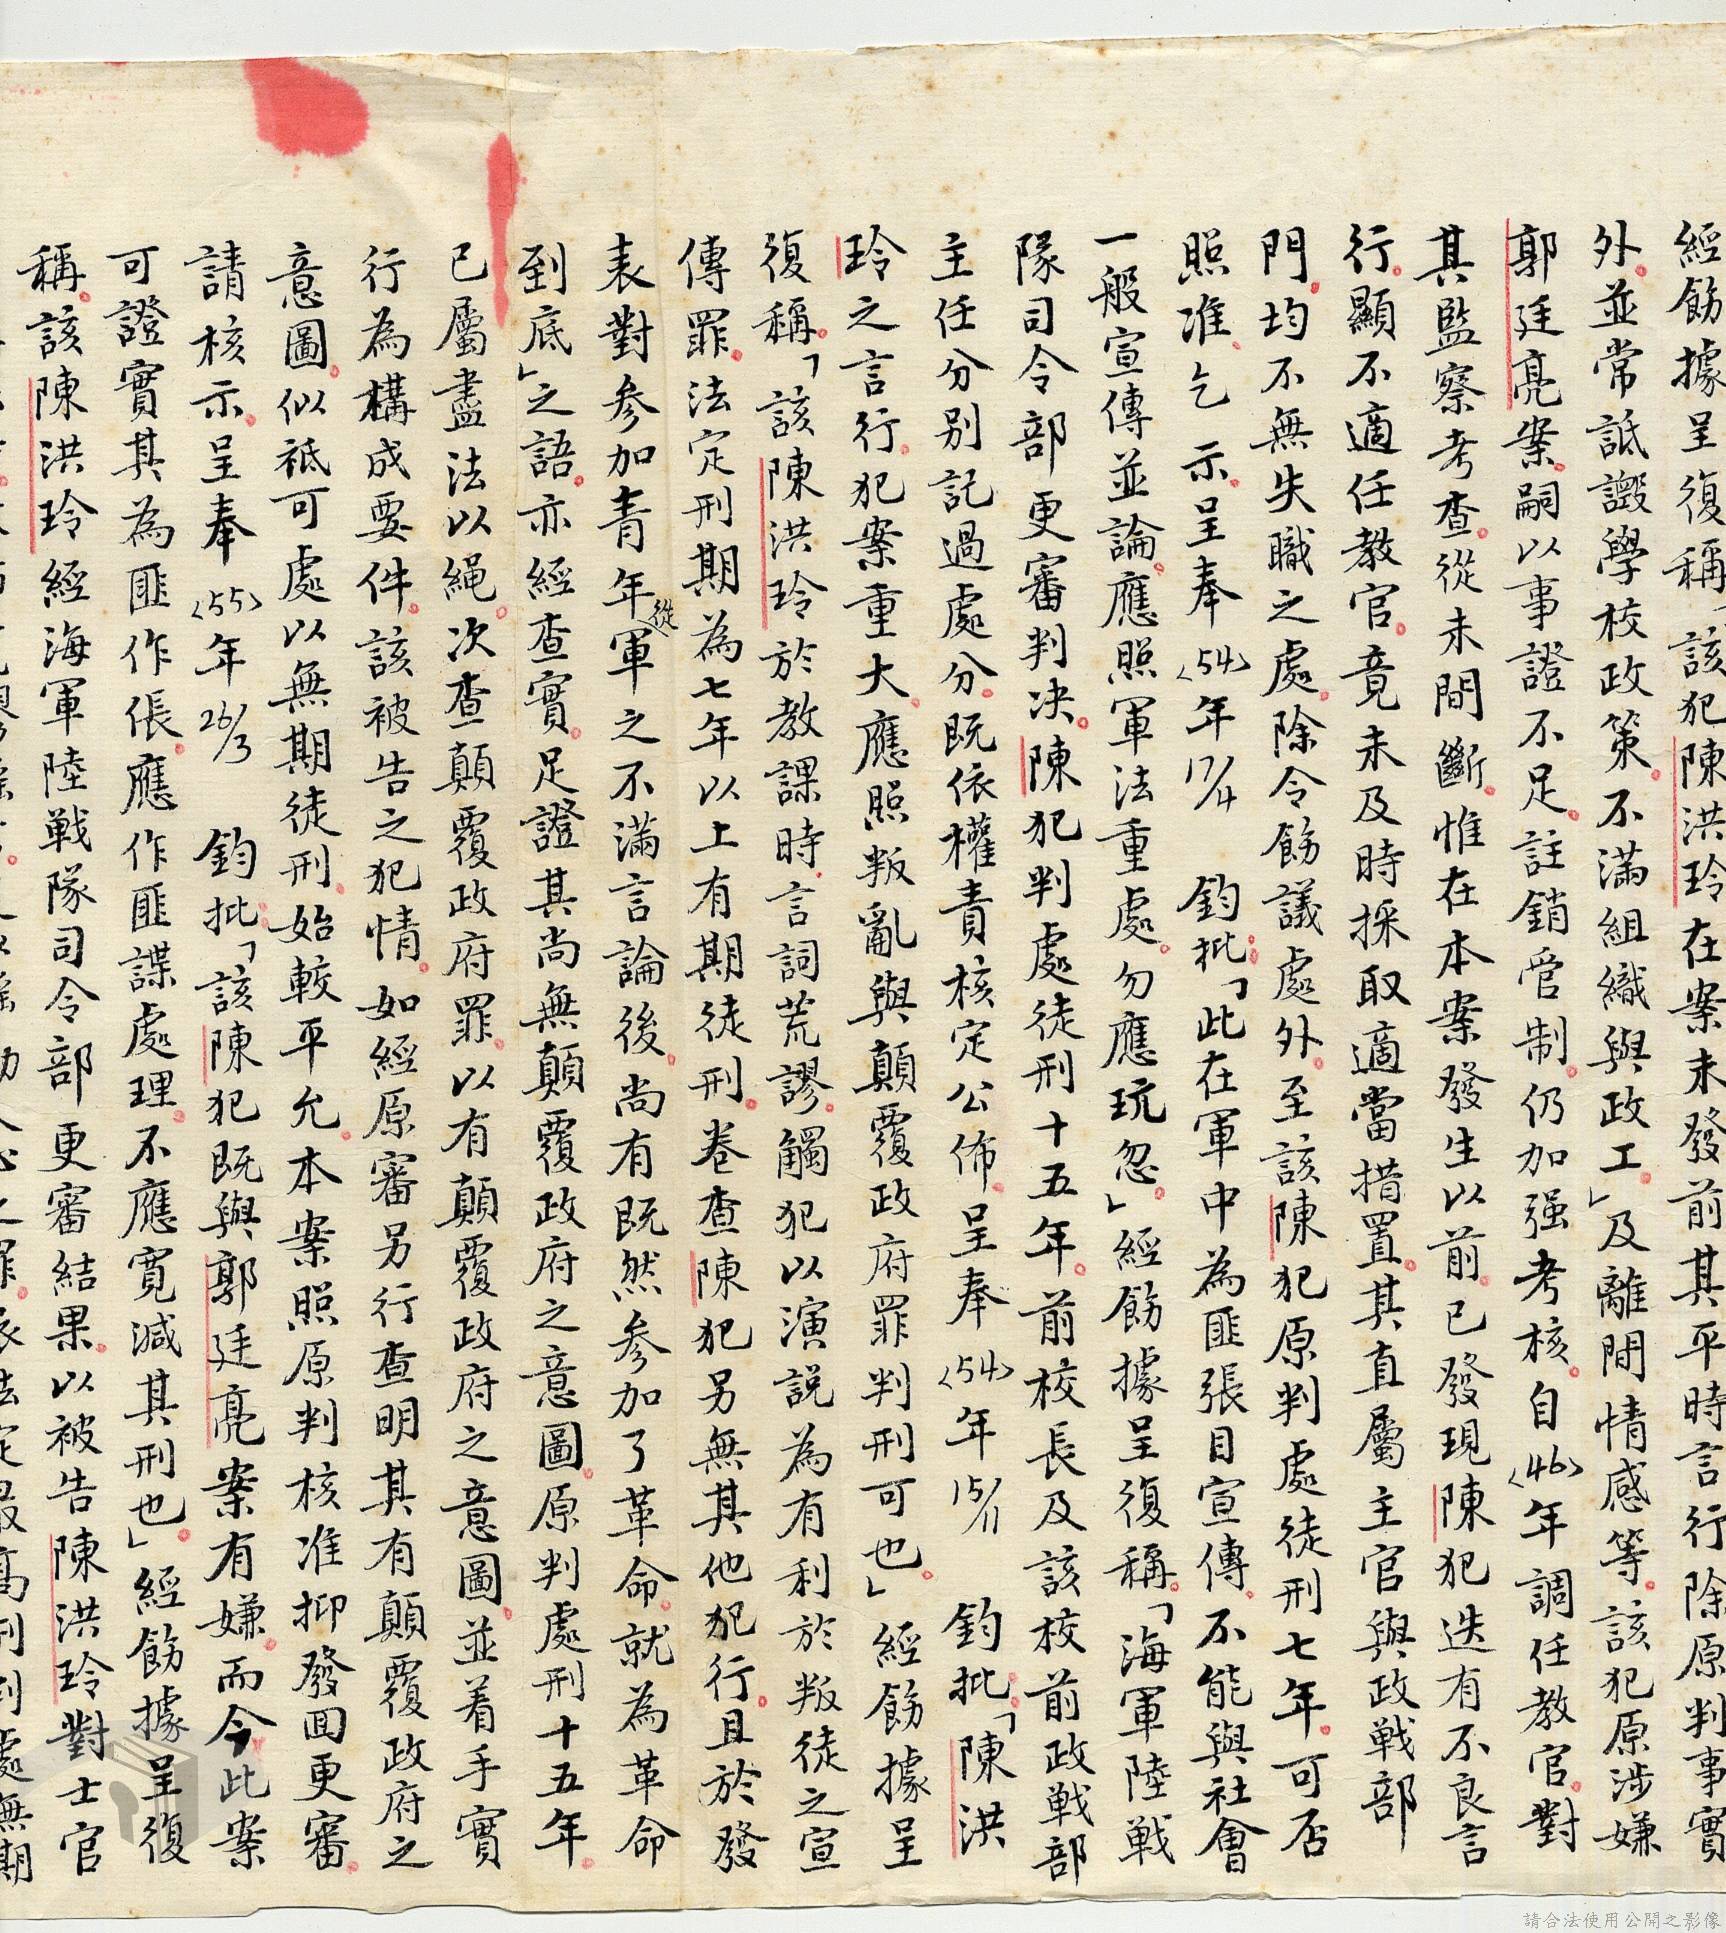 經飭據呈復稱「該犯陳洪玲在案未發前其平時言行除原判事實
外。並常詆譭學校政策。不滿組織與政工。」及離間情感等。該犯原涉嫌
郭廷亮案。嗣以事證不足。註銷管制。仍加强考核。自〈46〉年調任教官。對
其監察考查。從未間斷。惟在本案發生以前。已發現陳犯迭有不良言
行。顯不適任教官。竟未及時採取適當措置。其直屬主官與政戰部
門。均不無失職之處。除令飭議處外。至該陳犯原判處徒刑七年。可否
照准。乞示。呈奉〈54〉年17/4 鈞批。「此在軍中為匪張目宣傳。不能與社會
一般宣傳並論。應照軍法重處。勿應玩忽。」經飭據呈復稱。「海軍陸戰
隊司令部更審判决。陳犯判處徒刑十五年。前校長及該校前政戰部
主任分別記過處分。既依權責核定公佈。呈奉〈54〉年15/11 鈞批。「陳洪
玲之言行。犯案重大。應照叛亂與顛覆政府罪判刑可也。」經飭據呈
復稱。「該陳洪玲於教課時。言詞荒謬。觸犯以演說為有利於叛徒之宣
傳罪。法定刑期為七年以上有期徒刑。卷查陳犯另無其他犯行。且於發
表對參加青年從軍之不滿言論後。尚有既然參加了革命。就為革命
到底」之語。亦經查實。足證其尚無顛覆政府之意圖。原判處刑十五年。
已屬盡法以繩。次查顛覆政府罪。以有顛覆政府之意圖。並着手實
行為構成要件。該被告之犯情。如經原審另行查明其有顛覆政府之
意圖。似祇可處以無期徒刑。始較平允。本案照原判核准抑發回更審。
請核示。呈奉〈55〉年26/3 鈞批。「該陳犯既與郭廷亮案有嫌。而今此案
可證實其為匪作倀。應作匪諜處理。不應寬減其刑也。」經飭據呈復
稱。該陳洪玲經海軍陸戰隊司令部更審結果。以被告陳洪玲對士官
請合法使用公開之影像